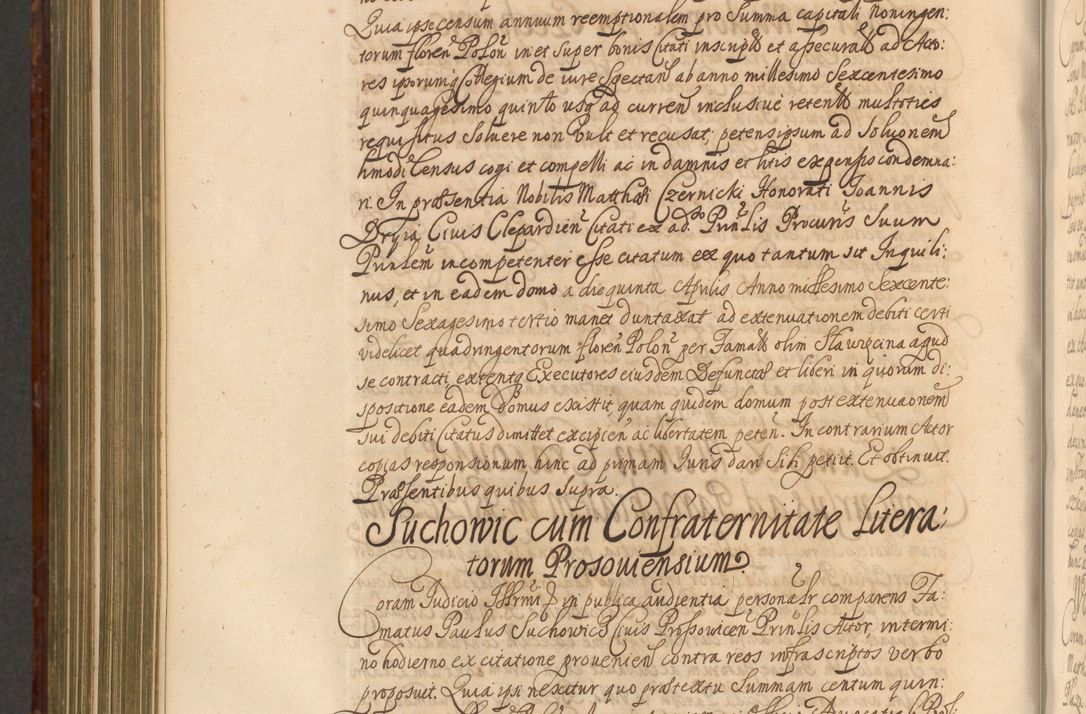 Quia ipse censum annuum reemptionalem pro Summa capitali noningen:
torum floren Polon in et super bonis Citati inscript et assecurat ad Acto:
res iporumq Collegium de iure Spectan ab anno millesimo Sexcentesimo
quinquagesimo quinto usq ad curren inclusive retent multoties
requisitus Solvere non vult et recusat, petens ipsum ad Solucionem
hmodi Census cogi et compelli ac in damnis et litis expensis condemna:
ri. In præsentia Nobilis Matthæi Czernicki Honorati Joannis
Civis Clepardien Citati ex ad Prinlis Procuris Suum
Prinlem incompetenter esse citatum ex quo tantum sit Inquili:
nus, et in eadem domo a die quinta Aprilis Anno millesimo Sexcente:
simo Sexagesimo tertio manet duntaxat ad extenuationem debiti certi
videlicet quadringentorum floren Polon per Famat olim Slawęcina apud
se contracti, extentq Executores eiusdem Defunctæ et liberi in quorum di:
spositione eadem Domus existit, quam quidem domum post extenuaonem
sui debiti Citatus dimittet excipien ac libertatem peten. In contrarium Actor
copias responsionum hinc ad primam Juris dari Sibi petiit. Et obtinuit.
Præsentibus quibus Supra.
Suchowic cum Confraternitate Litera:
torum Prosoviensium.
Coram Judicio Illrmi D in publica audientia personalr comparens Fa:
matus Paulus Suchowic Civis Prossovicen Prinlis Actor, in termi:
no hodierno ex citatione provenien contra reos infrascriptos verbo
proposuit. Quia ipsi nescitur quo prætextu Summam centum quin: